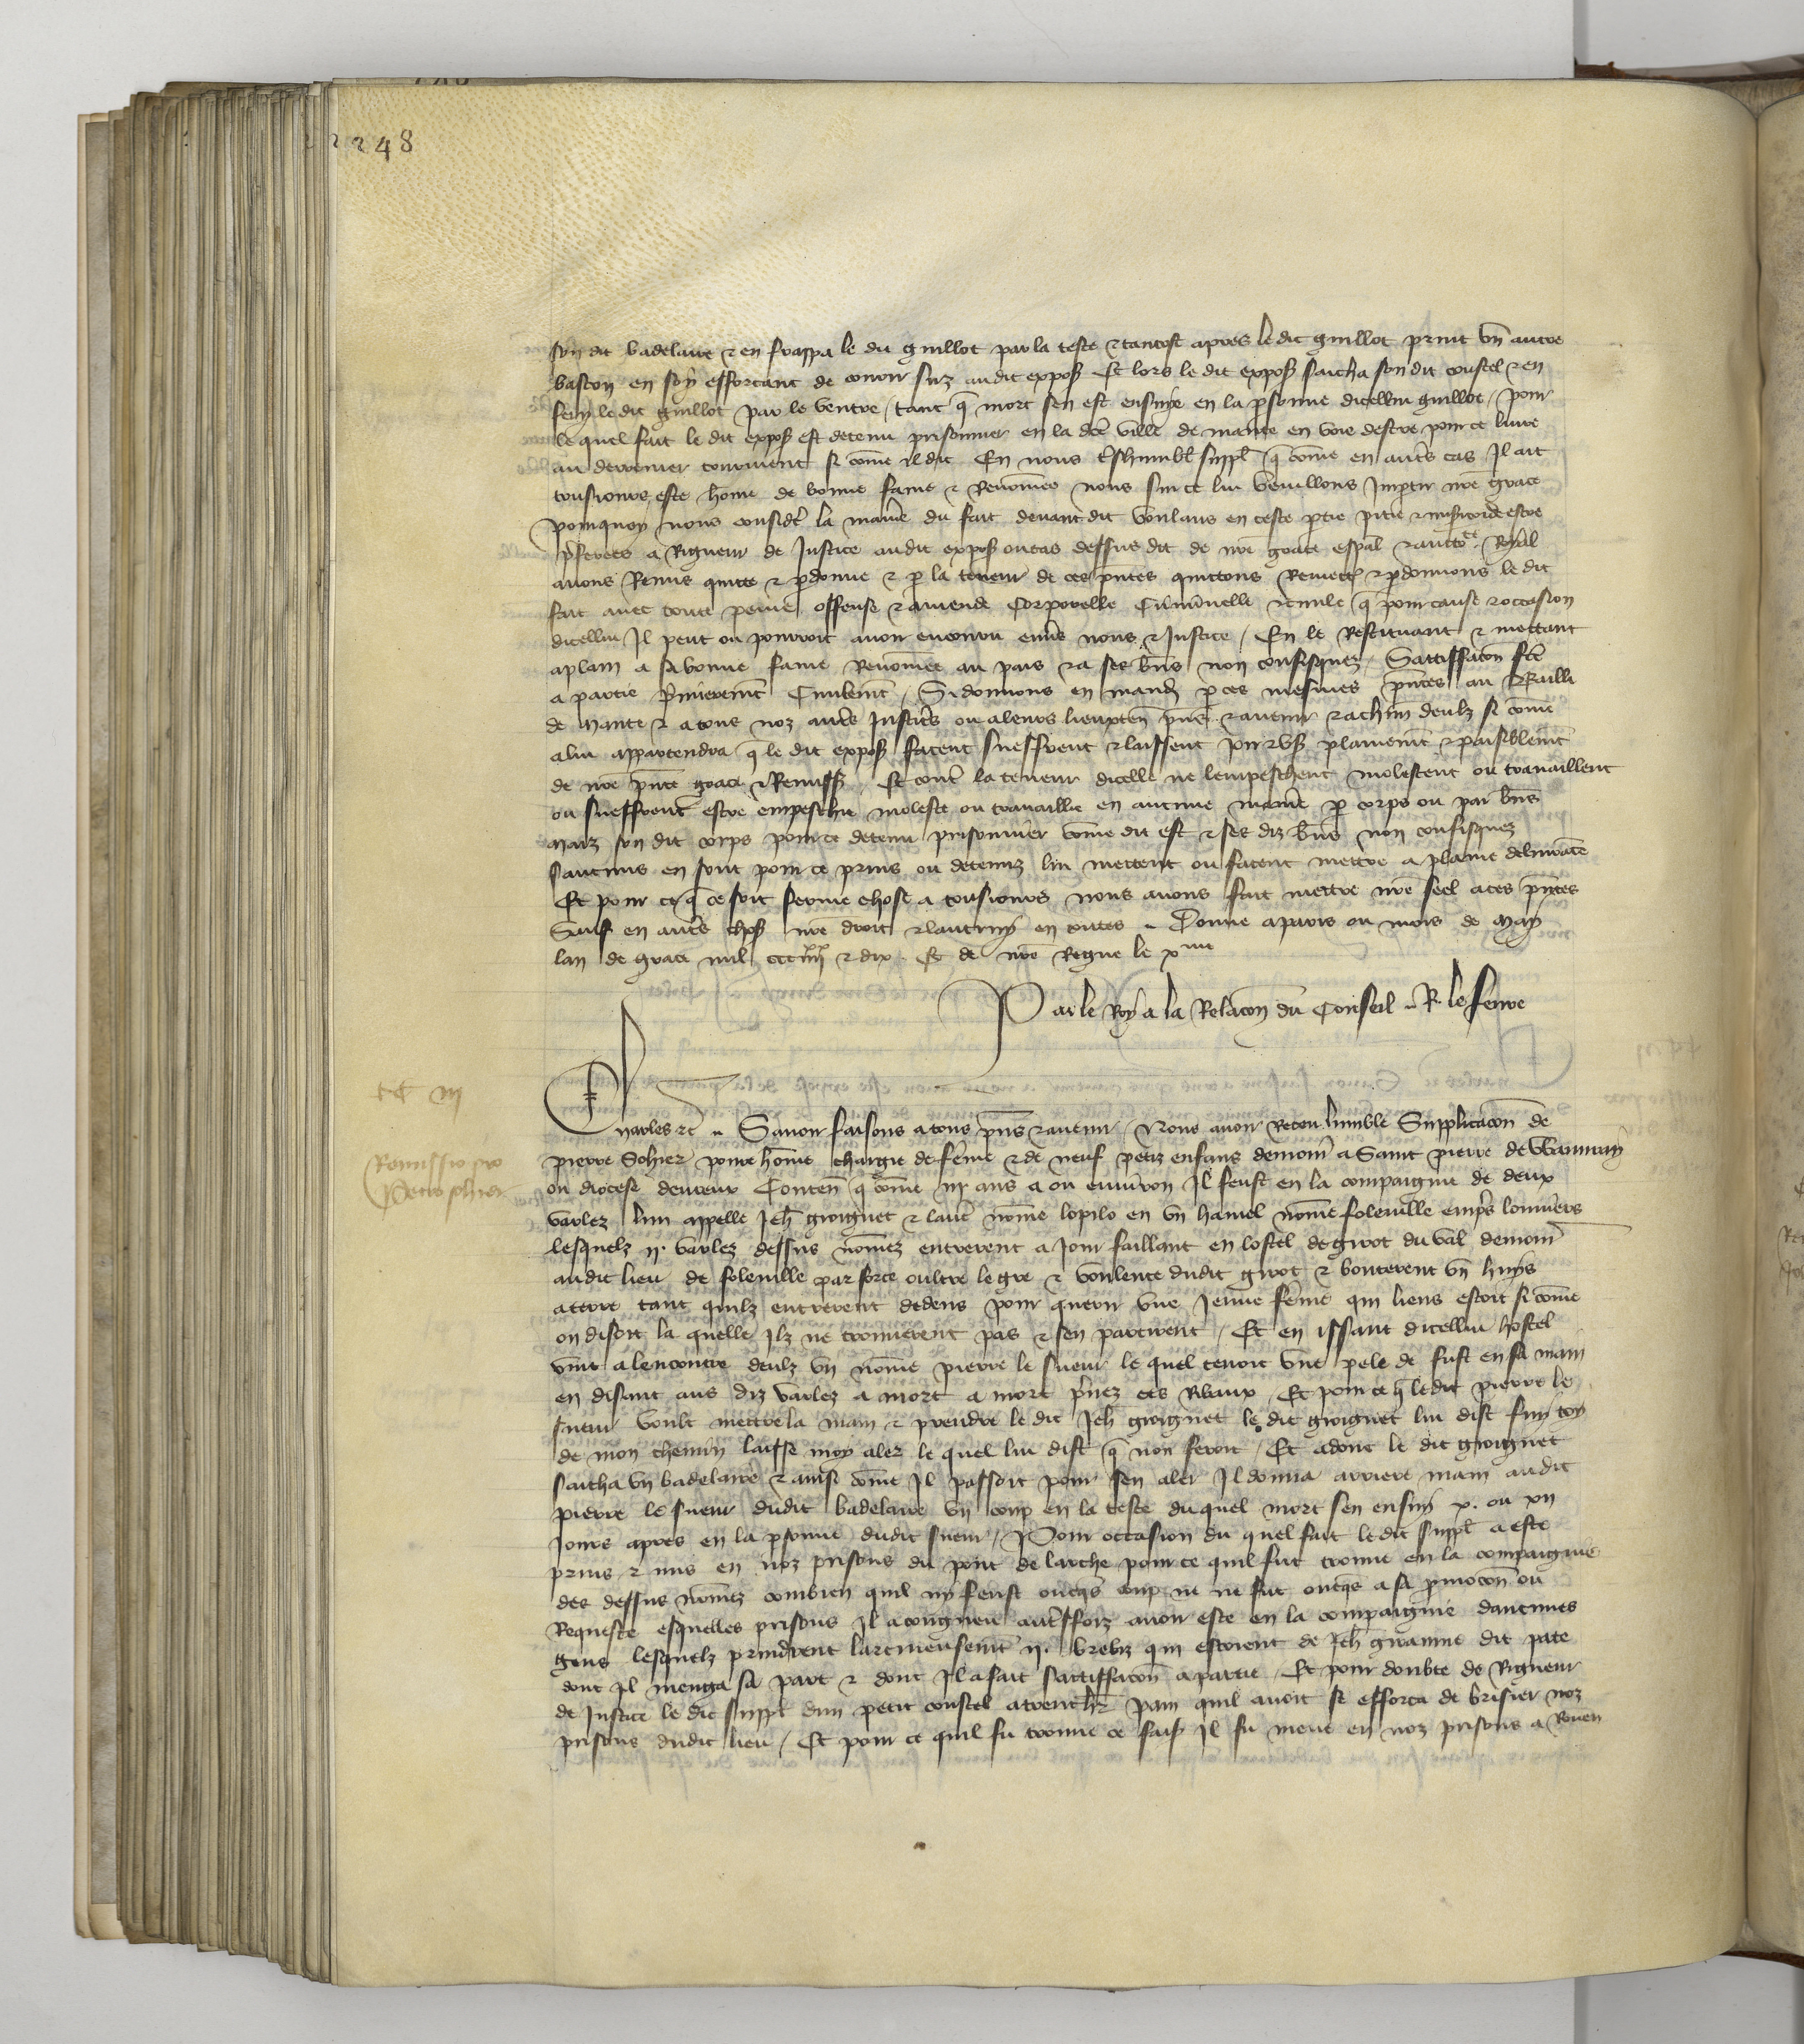 248
son dit badelaire & en frappa le dit guillot par la teste & tantost apres le dit guillot print vn autre
baston en soy efforcant de courir suz audit expos Et lors le dit expos saicha son dit coustel & en
fery le dit guillot par le ventre / tant q̄ mort sen est ensuye en la psonne dicellui guillot / pour
le quel fait le dit expos est detenu prisonnier en la dce ville de mante en voie destre pour ce liure
au derrenier tourment si cōme il dit En nous treshumbl suppl q̄ cōme en autres cas Il ait
tousiours este hōme de bonne fame & Renōmee nous sur ce lui veuillons Imptir nr̄e grace
pourquoy nous considt la manie du fait deuant dit voulans en ceste ptie pitie & misicorde estre
pferees a Rigueur de Justice audit expos ou cas dessus dit de nr̄e grace espāl & auctote Royal
auons Remis quitte & pdonne & p la teneur de ces pntes quittons Remett & pdonnons le dit
fait auec toute peine offense & amende Corporelle Criminelle & ciuile q̄ pour cause & occasion
dicellui Il peut ou pourroit auoir encouru enus nous & Justice / En le Restituant & mettant
a plain a sa bonne fame Renōmee au pais & a ses bn̄s non confisquez / Sattiffacōn fce
a partie pmierement Ciuilemt / Si donnons en mand p ces mesmes pntes au Bailli
de Mante & a tous noz autres Justicrs ou a leurs lieuxten pn̄s & auenir & a chun deulz si cōme
a lui appartendra q̄ le dit expos facent sueffrent & laissent Joir & vs plainemt & paisiblemt
de nr̄e pnte grace & Remiss Et contr la teneur dicelle ne lempeschent molestent ou trauaillent
ou sueffrent estre empeschie moleste ou trauaillie en aucune manie p corps ou par bn̄s
Maiz son dit corps pour ce detenu prisonnier cōme dit est & ses diz bn̄s non confisquez
saucuns en sont pour ce prins ou detenuz lui mettent ou facent mettre a plaine deliurāce
Et pour ce q̄ ce soit ferme chose a tousiours nous auons fait mettre nr̄e seel a ces pntes
Sauf en autres chos nr̄e droit & lautruy en toutes Donne a paris ou mois de May
lan de grace mil ccc iiiixx & dix Et de nr̄e Regne le xme
Par le Roy a la Relacōn du Conseil R. le feure
iic iii
Charles &c Sauoir faisons a tous pn̄s & auenir / Nous auoir Receu lumble Supplicacōn de
Remissio pro
Petro sohier
pierre Sohier poure hōme chargie de fēme & de neuf petiz enfans demour a Saint pierre de
ou diocese deureux Conten q̄ cōme iii ans a ou enuiron Il feust en la compaignie de deux
varlez lun appelle Jeh groignet & lautr nōme lopilo en vn hamel nōme foleuille empres louuiers
lesquelz ii varlez dessus nōmez entrerent a Jour faillant en lostel de girot du val demour
audit lieu de foleuille par force oultre le gre & voulente dudit girot & bouterent vn huys
a terre tant quilz entrerent dedens pour querir vne Jeune fēme qui liens estoit si cōme
on disoit la quelle Ilz ne trouuerent pas & sen partirent / Et en issant dicellui hostel
vint a lencontre deulz vn nōme pierre le sueur le quel tenoit vne pele de fust en sa main
en disant aus diz varlez a mort a mort prnez ces Ribaux Et pour ce q̄ ledit pierre le
sueur voult mettre la main & prendre le dit Jeh groignet le dit groignet lui dist fuy toy
de mon chemin laisse moy aler le quel lui dist q̄ non feroit Et adonc le dit groignet
saicha vn badelaire & ainsi cōme Il passoit pour sen aler Il donna arriere main audit
pierre le sueur dudit badelaire vn coup en la teste duquel mort sen ensuy x. ou xii
Jours apres en la psonne dudit sueur / Pour occasion du quel fait le dit suppl a este
prins & mis en noz prisons du pont de larche pour ce quil fut trouue en la compaignie
des dessus nōmez combien quil ny ferist oncqs coup ne ne fut oncqs a sa pmocōn ou
Requeste esquelles prisons Il a congneu autreffoiz auoir este en la compaignie daucunes
gens lesquelz prindrent larcineusemt ii. brebiz qui estoient de Jeh dit pate
dont Il menga sa part & dont Il a fait sattiffacōn a partie Et pour doubte de Rigueur
de Justice le dit suppl dun petit coustel a trenchr pain quil auoit se efforca de brisier noz
prisons dudit lieu / Et pour ce quil fu trouue ce fais Il fu mene en noz prisons a Rouen